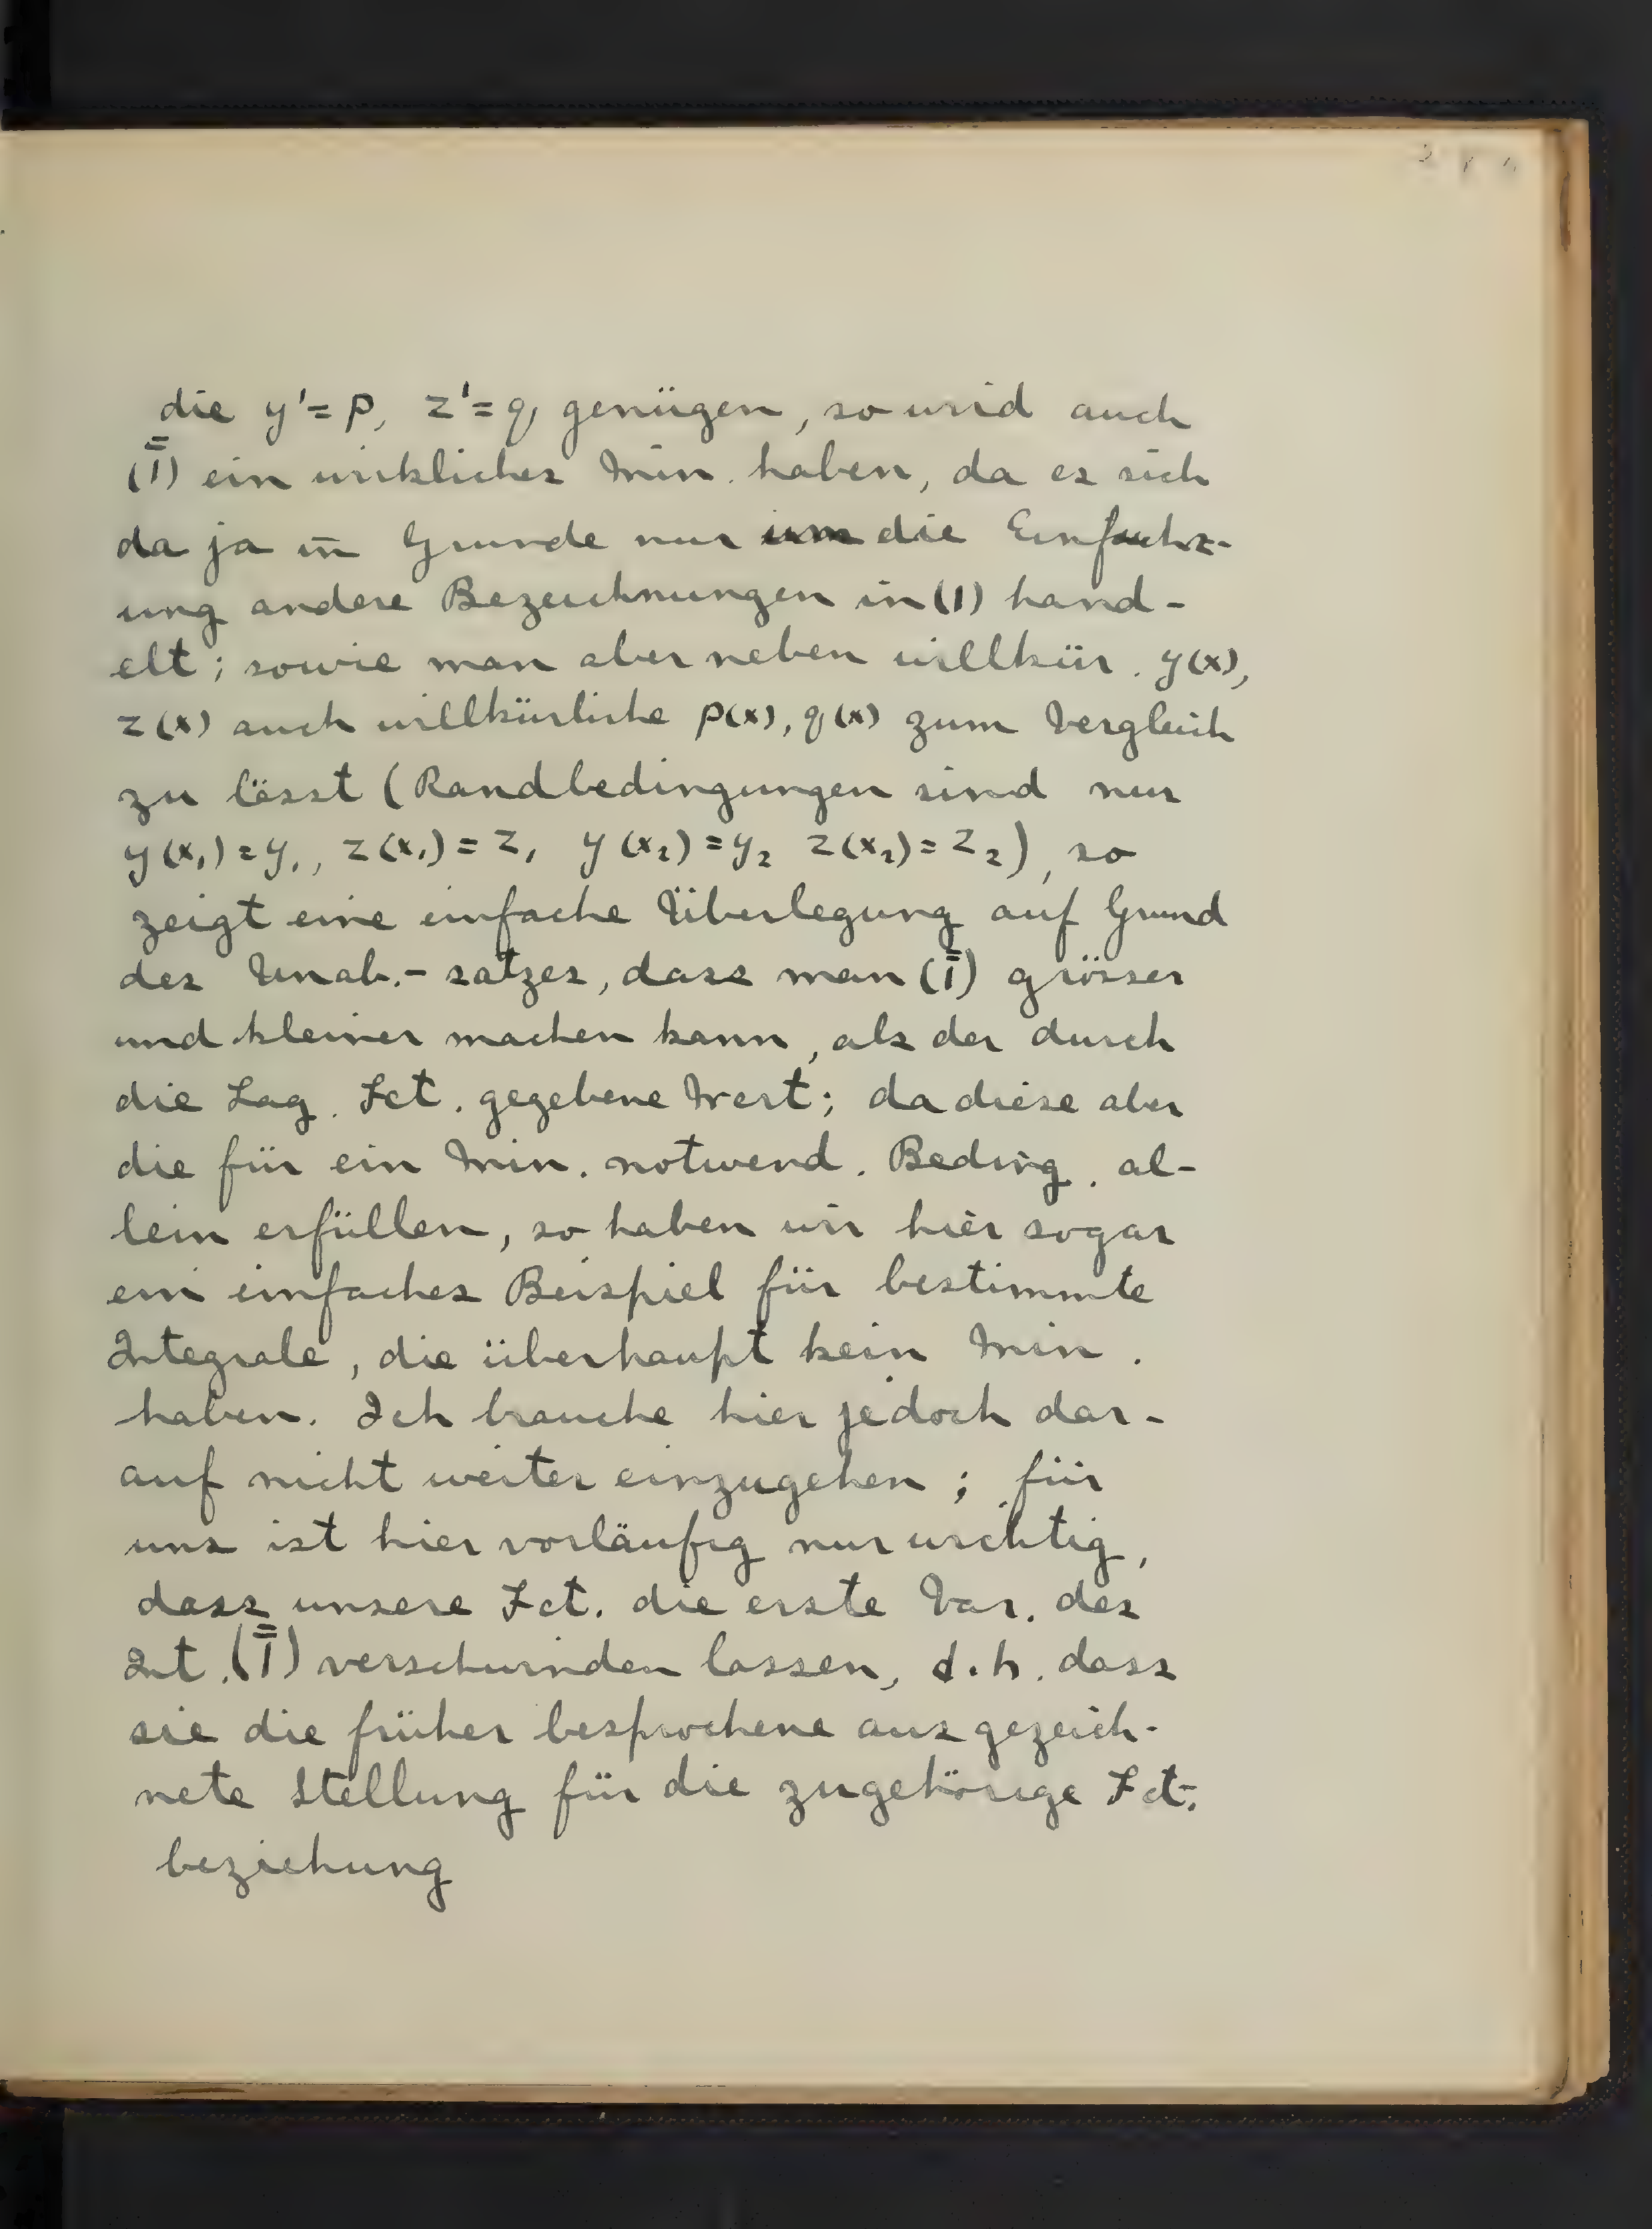 die y'=p, z'=q genügen, so wird auch
(1̿) ein wirkliches Min. haben, da es sich
da ja im Grunde nur um die Einführ-
ung andere Bezeichnungen in (1) hand-
elt; sowie man aber neben willkür. y(x),
z(x) auch willkürliche p(x), q(x) zum Vergleich
zu lässt (Randbedingungen sind nur
y(x₁)=y₁, z(x₁)=z₁ y(x₂)=y₂ z(x₂)=z₂), so
zeigt eine einfache Überlegung auf Grund
des Unab.-satzes, dass man (1̿) grösser
und kleiner machen kann, als der durch
die Lag. Fct. gegebene Wert; da diese aber
die für ein Min. notwend. Beding. al-
lein erfüllen, so haben wir hier sogar
ein einfaches Beispiel für bestimmte
Integrale, die überhaupt kein Min.
haben. Ich brauche hier jedoch dar-
auf nicht weiter einzugehen; für
uns ist hier vorläufig nur wichtig,
dass unsere Fct. die erste Var. des
Int. (1̿) verschwinden lassen, d.h. dass
sie die früher besprochene ausgezeich-
nete Stellung für die zugehörige Fct.-
beziehung